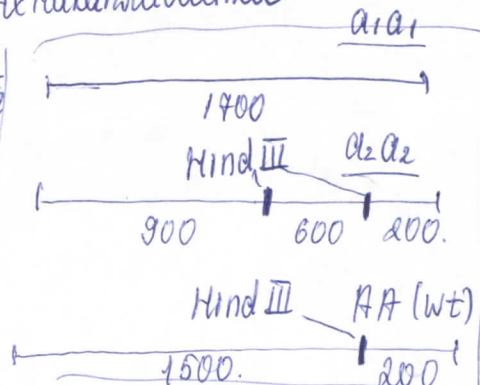 a₁a₁
1700
Hind III a₂a₂
900 600 200.
Hind III AA (wt)
1500. 200